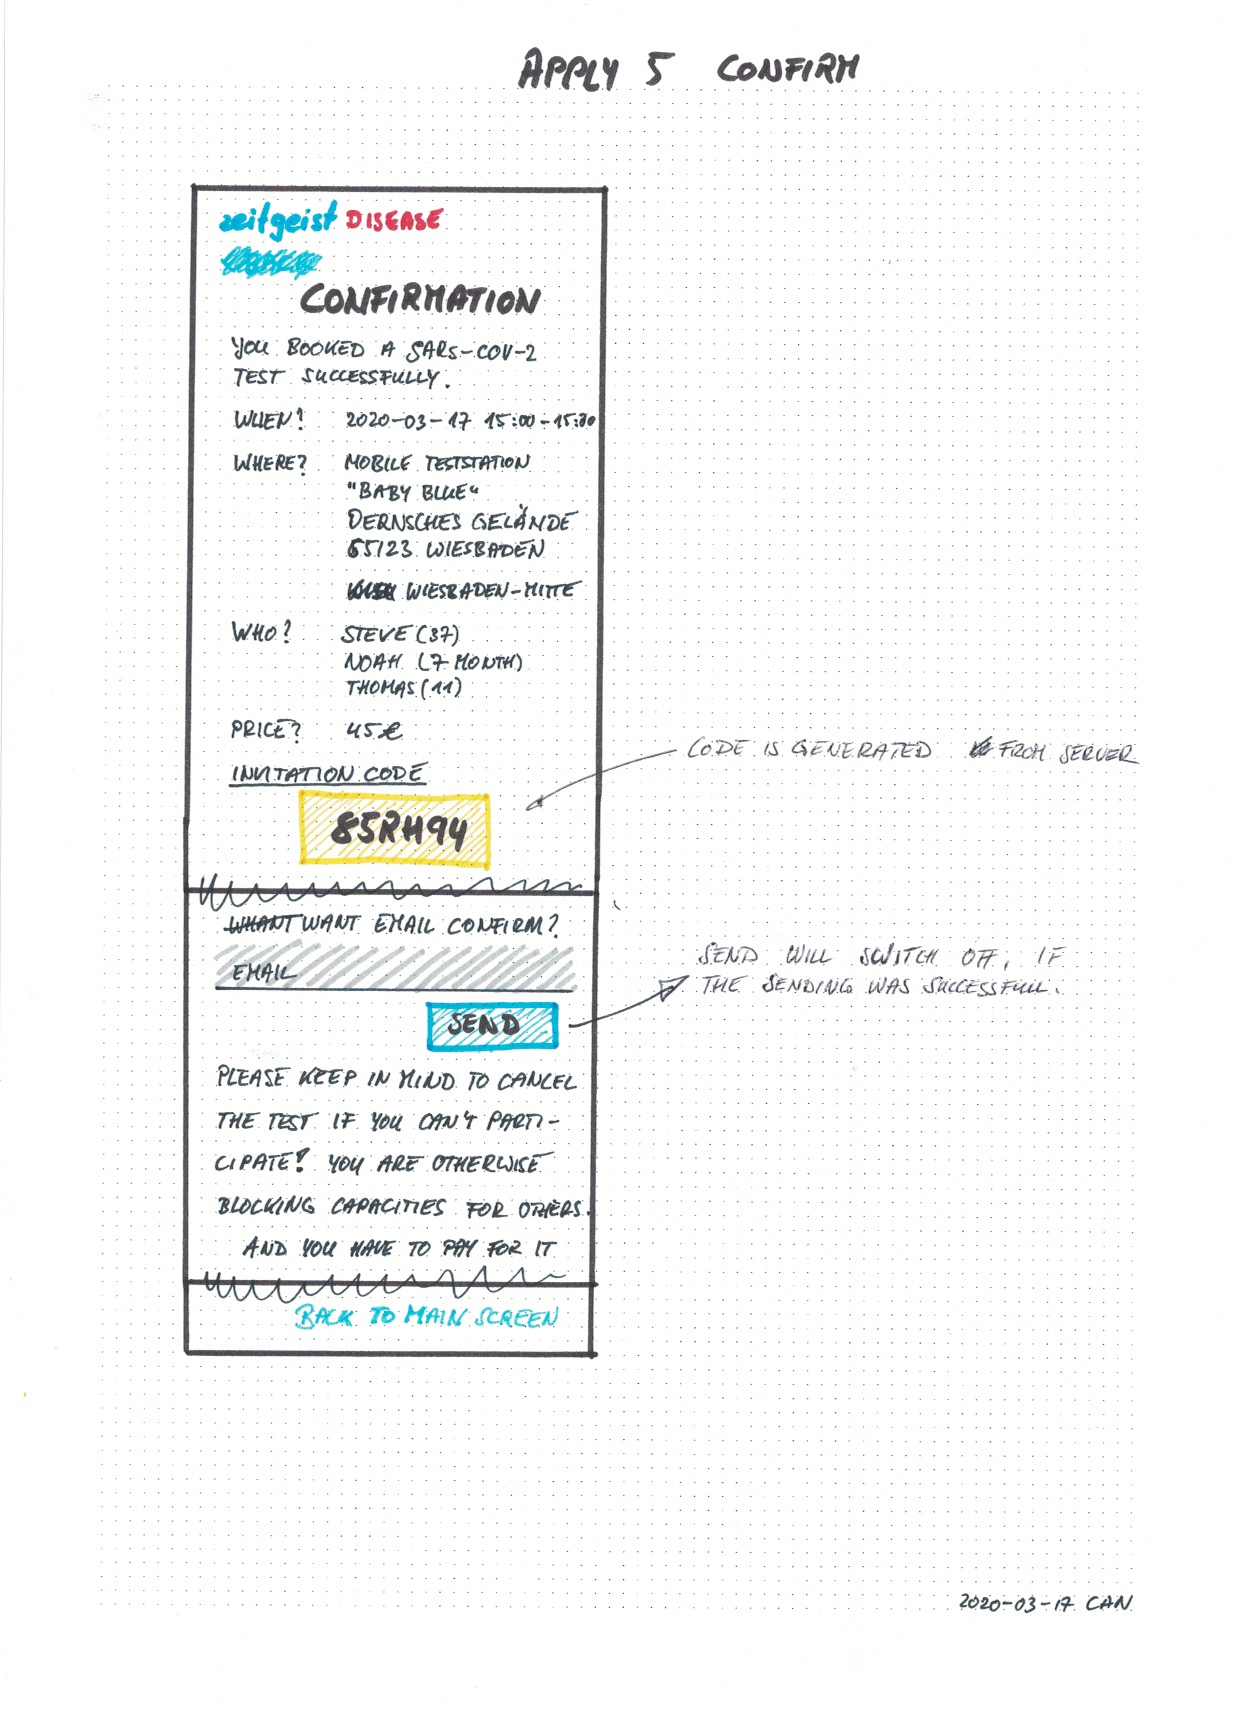 APPLY 5 CONFIRM
zeitgeist DISEASE
CONFIRMATION
YOU BOOKED A SARS-COV-2
TEST SUCCESSFULLY.
WHEN? 2020-03-17 15:00-15:30
WHERE? MOBILE TESTSTATION
"BABY BLUE"
DERNSCHES GELÄNDE
65123 WIESBADEN
WIESBADEN-MITTE
WHO? STEVE (37)
NOAH (7 MONTH)
THOMAS (11)
PRICE? 45€
CODE IS GENERATED FROM SERVER
INVITATION CODE
85RH94
WHANT WANT EMAIL CONFIRM?
EMAIL
SEND WILL SWITCH OFF, IF
THE SENDING WAS SUCCESSFULL.
SEND
PLEASE KEEP IN MIND TO CANCEL
THE TEST IF YOU CAN'T PARTI-
CIPATE! YOU ARE OTHERWISE
BLOCKING CAPACITIES FOR OTHERS.
AND YOU HAVE TO PAY FOR IT
BACK TO MAIN SCREEN
2020-03-17 CAN